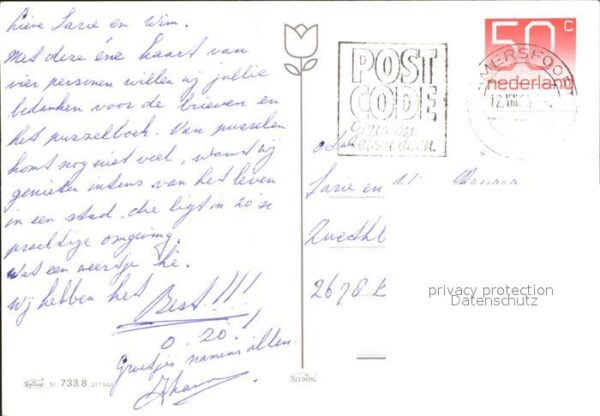 Lieve Sarie en Wim.
Met deze éne kaart van
vier personen willen wij jullie
bedanken voor de brieven en
het puzzelboek. Van puzzelen
komt nog niet veel, want wij
genieten intens van het leven
in een stad, die ligt in zo'n
prachtige omgeving.
Wat een weertje hè.
Wij hebben het Best!!!
Groetjes namens allen.
51 733.8
50 C
nederland
AMERSFOORT
12.VIII
POST
CODE
Sarie en
2678
privacy protection
Datenschutz